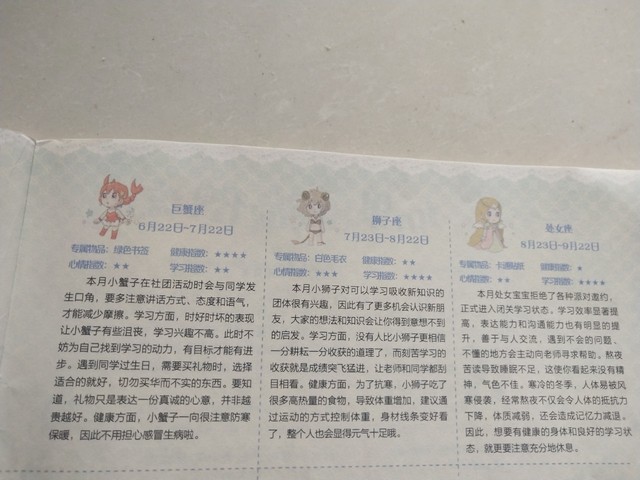 巨蟹座
6月22日-7月22日
专属物品：绿色书签 健康指数：★★★★
心情指数：★★ 学习指数：★★
本月小蟹子在社团活动时会与同学发
生口角，要多注意讲话方式、态度和语气，
才能减少摩擦。学习方面，时好时坏的表现
让小蟹子有些沮丧，学习兴趣不高。此时不
妨为自己找到学习的动力，有目标才能有进
步。遇到同学过生日，需要买礼物时，选择
适合的就好，切勿买华而不实的东西。要知
道，礼物只是表达一份真诚的心意，并非越
贵越好。健康方面，小蟹子一向很注意防寒
保暖，因此不用担心感冒生病啦。
狮子座
7月23日-8月22日
专属物品：白色毛衣 健康指数：★★
心情指数：★★★ 学习指数：★★★★
本月小狮子对可以学习吸收新知识的
团体很有兴趣，因此有了更多机会认识新朋
友，大家的想法和知识会让你得到意想不到
的启发。学习方面，没有人比小狮子更相信
一分耕耘一分收获的道理了，而刻苦学习的
收获就是成绩突飞猛进，让老师和同学都刮
目相看。健康方面，为了抗寒，小狮子吃了
很多高热量的食物，导致体重增加，建议通
过运动的方式控制体重，身材线条变好看
了，整个人也会显得元气十足哦。
处女座
8月23日-9月22日
专属物品：卡通贴纸 健康指数：★
心情指数：★★ 学习指数：★★★★
本月处女宝宝拒绝了各种派对邀约，
正式进入闭关学习状态。学习效率显著提
高，表达能力和沟通能力也有明显的提
升，善于与人交流，遇到不会的问题、
不懂的地方会主动向老师寻求帮助。熬夜
苦读导致睡眠不足，这使你看起来没有精
神，气色不佳。寒冷的冬季，人体易被风
寒侵袭，经常熬夜不仅会令人体的抵抗力
下降，体质减弱，还会造成记忆力减退。
因此，想要有健康的身体和良好的学习状
态，就更要注意充分地休息。